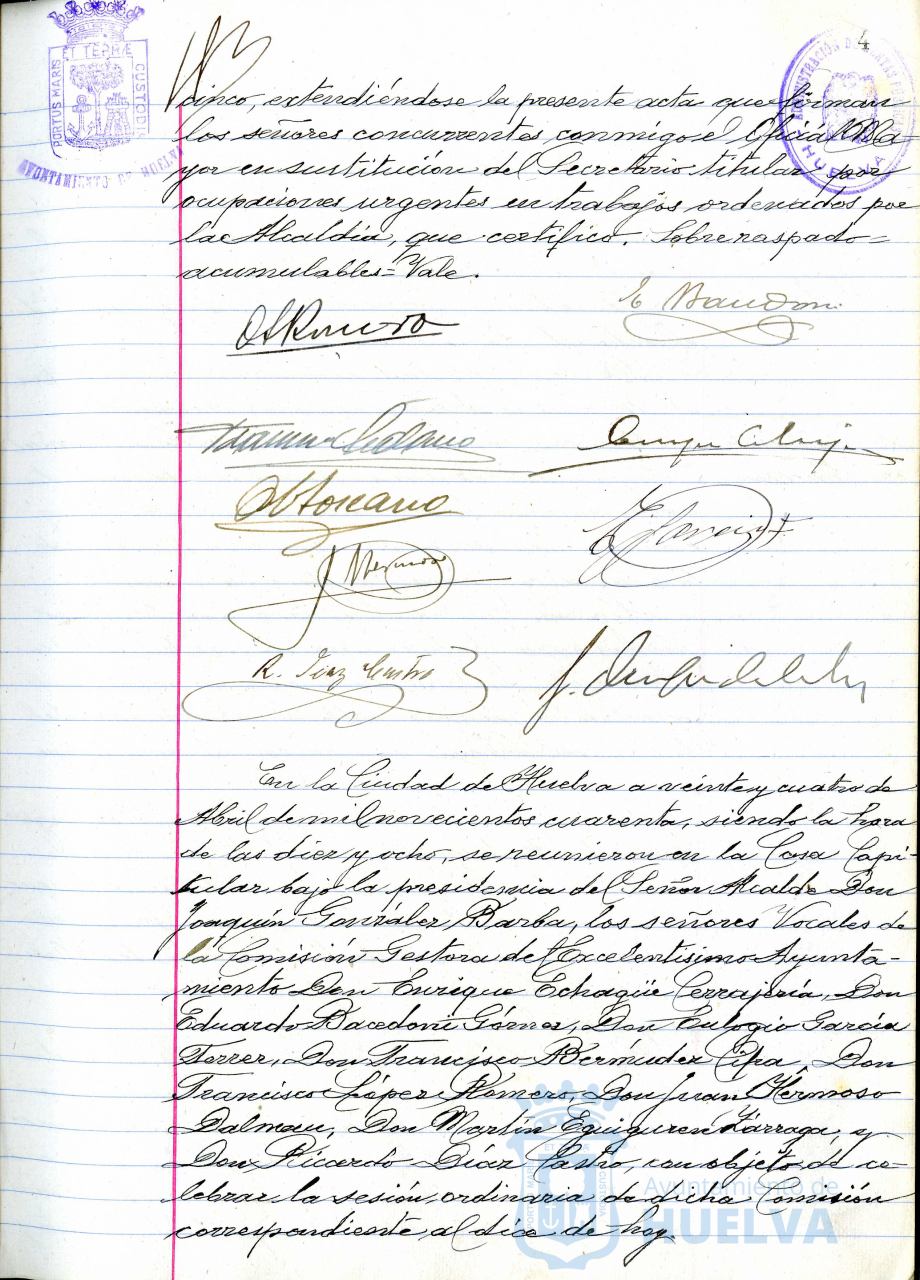 4
PORTUS MARIS ET TERRÆ CUSTODIA
AYUNTAMIENTO DE HUELVA
ADMINISTRACION DE RENTAS
HUELVA
cinco, extendiéndose la presente acta que firman
los señores concurrentes conmigo el Oficial Ma-
yor en sustitución del Secretario titular por
ocupaciones urgentes en trabajos ordenados por
la Alcaldía, que certifico. Sobre raspado=
acumulables= Vale.
R. Diaz Castro
En la Ciudad de Huelva a veinte y cuatro de
Abril de mil novecientos cuarenta, siendo la hora
de las diez y ocho, se reunieron en la Casa Capi-
tular bajo la presidencia del Señor Alcalde Don
Joaquín González Barba, los señores Vocales de
la Comisión Gestora del Excelentísimo Ayunta-
miento Don Enrique Echagüe Cerrajería, Don
Eduardo Bacedoni Gómez, Don Eulogio García
Ferrer, Don Francisco Bermudez Cifra, Don
Francisco López Romero, Don Juan Hermoso
Dalmau, Don Martín Eguiguren Lárraga, y
Don Ricardo Díaz Castro, con objeto de ce-
lebrar la sesión ordinaria de dicha Comisión
correspondiente al día de hoy.
Ayuntamiento de
HUELVA